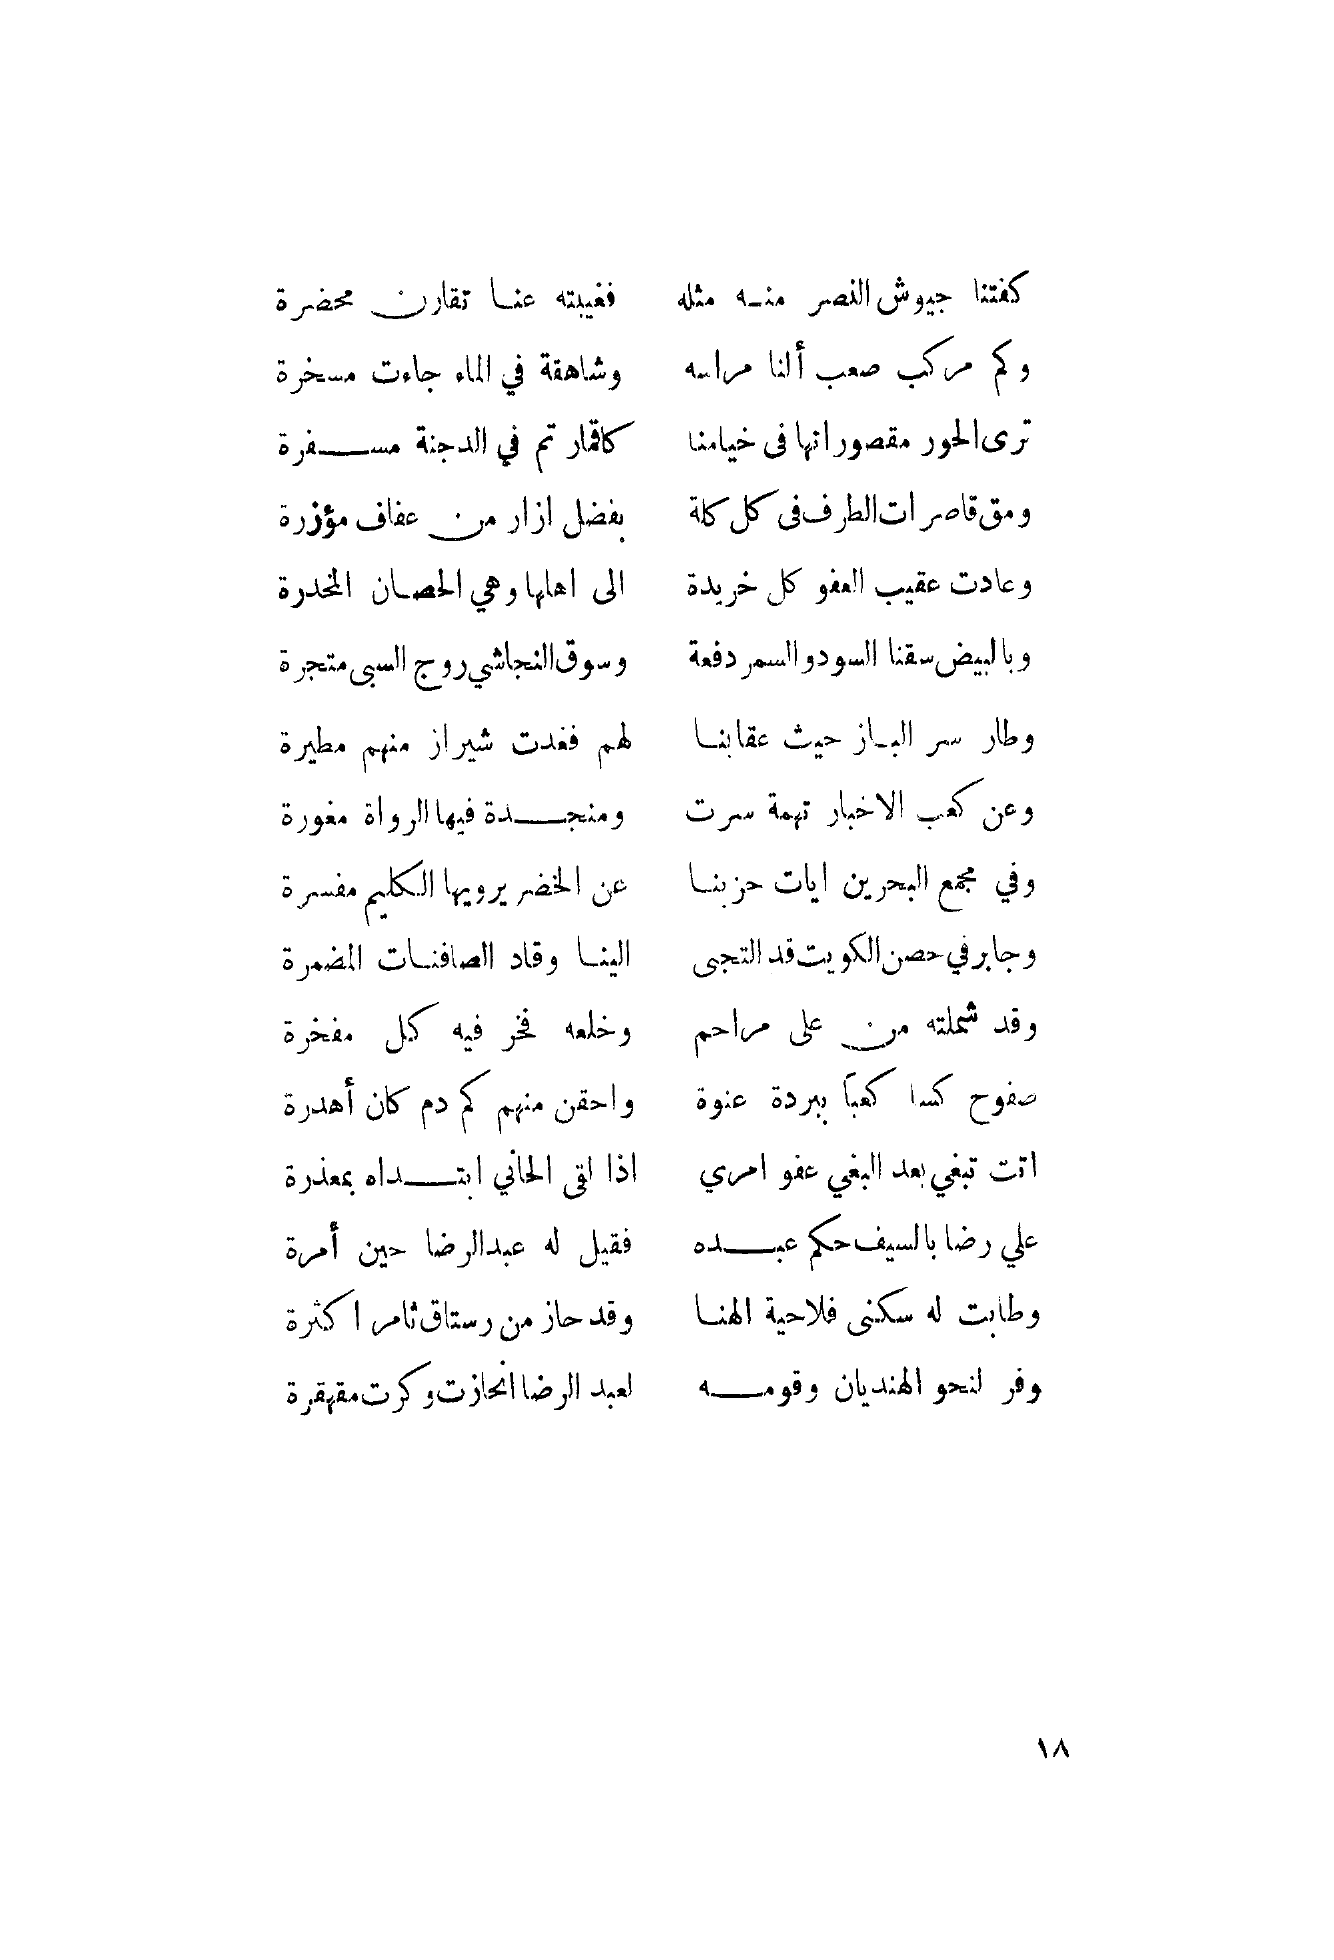 كفتنا جيوش النصر منه مثله فغيبته عنا تقارن محضرة
وكم مركب صعب ألنا مراسه وشاهقة في الماء جاءت مسخرة
ترى الحور مقصوراتها في خيامنا كاقمار تم في الدجنة مسفرة
ومق قاصرات الطرف في كل كلة بفضل ازار من عفاف مؤزرة
وعادت عقيب العفو كل خريدة الى اهلها وهي الحصان المخدرة
وبالبيض سقنا السود والسمر دفعة وسوق النجاشي روج السبى متجرة
وطار سر الباز حيث عقابنا لهم فغدت شيراز منهم مطيرة
وعن كعب الاخبار تهمة سرت ومنجدة فيها الرواة مغورة
وفي مجمع البحرين ايات حزبنا عن الخضر يرويها الكليم مفسرة
وجابر في حصن الكويت قد التجى الينا وقاد الصافنات المضمرة
وقد شملته من على مراحم وخلعه فخر فيه كبل مفخرة
صفوح كسا كعباً ببردة عنوة واحقن منهم كم دم كان أهدرة
اتت تبغي بعد البغي عفو امري اذا لقى الحاني ابتداه بمعذرة
علي رضا بالسيف حكم عبده فقيل له عبدالرضا حين أمرة
وطابت له سكنى فلاحية الهنا وقد حاز من رستاق ثامر اكثرة
وفر لنحو الهنديان وقومه لعبد الرضا انحازت وكرت مقهقرة
١٨